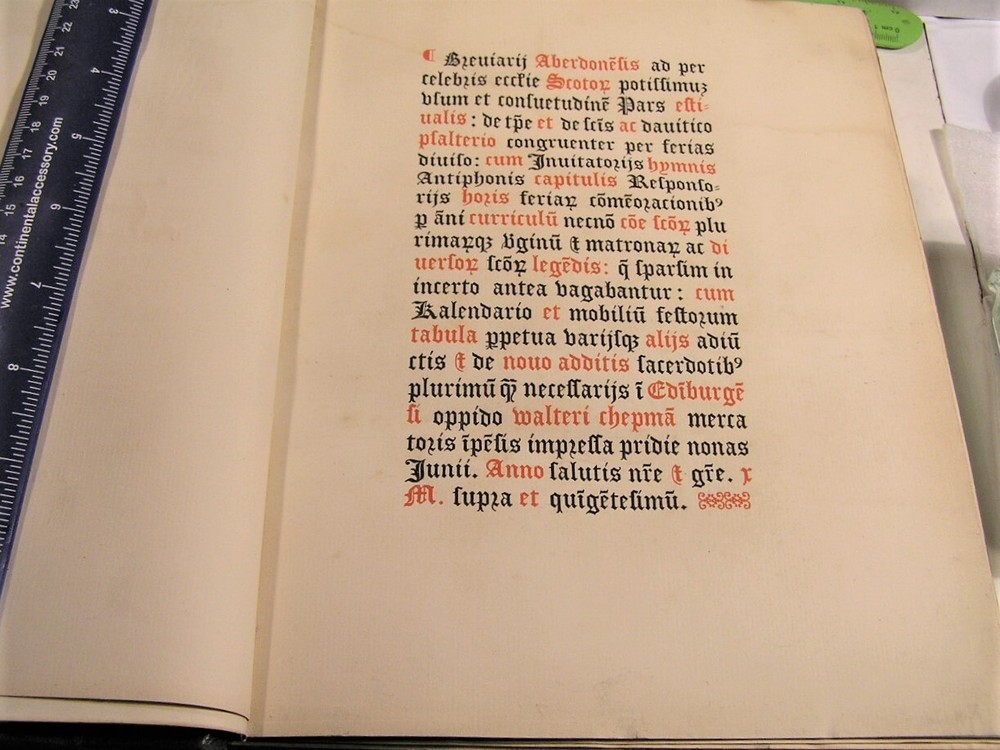 ¶ Breuiarij Aberdonēsis ad per
celebris eccl̄ie Scotoꝝ potissimuꝫ
vsum et consuetudinē Pars esti-
ualis : de tp̄e et de scīs ac dauitico
psalterio congruenter per ferias
diuiso: cum Inuitatorijs hymnis
Antiphonis capitulis Responso-
rijs horis feriaꝝ cōmēoracionibꝰ
ꝑ āni curriculū necnō cōe scōꝝ plu
rimaꝝqꝫ Vginū ⁊ matronaꝝ ac di
uersoꝝ scōꝝ legēdis: q̄ sparsim in
incerto antea vagabantur: cum
Kalendario et mobiliū festorum
tabula ꝑpetua varijsqꝫ alijs adiū
ctis ⁊ de nouo additis sacerdotibꝰ
plurimū qꝫ̄ necessarijs ī Edīburgē
si oppido walteri chepmā merca
toris īpēsis impressa pridie nonas
Junii. Anno salutis nr̄e ⁊ gr̄e. x
M. supra et quīgētesimū.
www.continentalaccessory.com
3
4
5
6
7
8
23
22
21
20
19
18
17
16
15
14